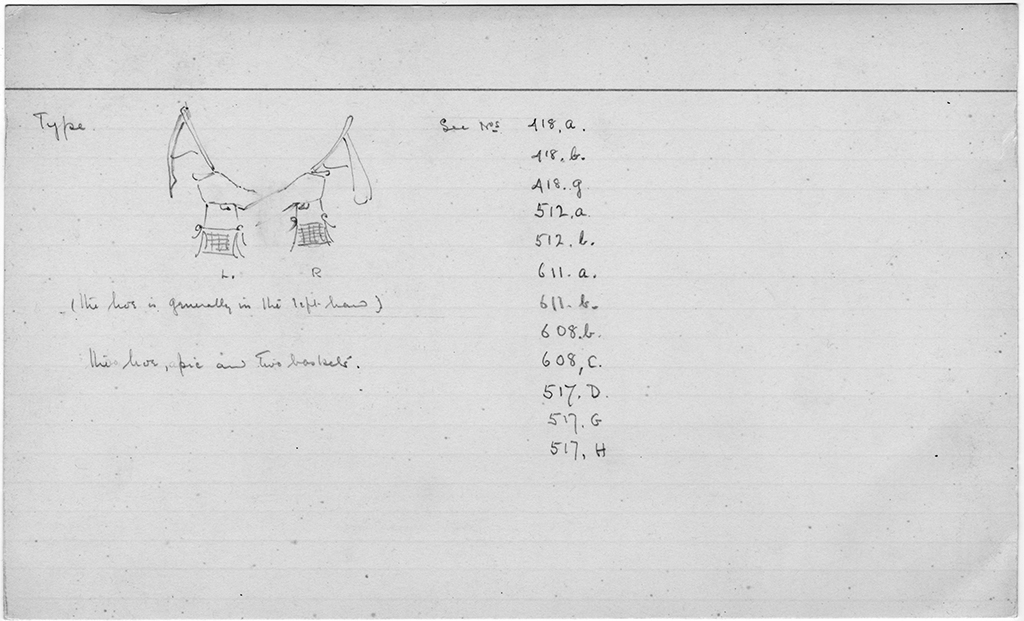 Type.
See Nos 418, a.
418. b.
418. g
512, a.
512. b.
611. a.
611. b.
608. b.
608, C.
517. D.
517. G
517, H
L. R
(the hoe is generally in the left hand)
the hoe, pic and two baskets.